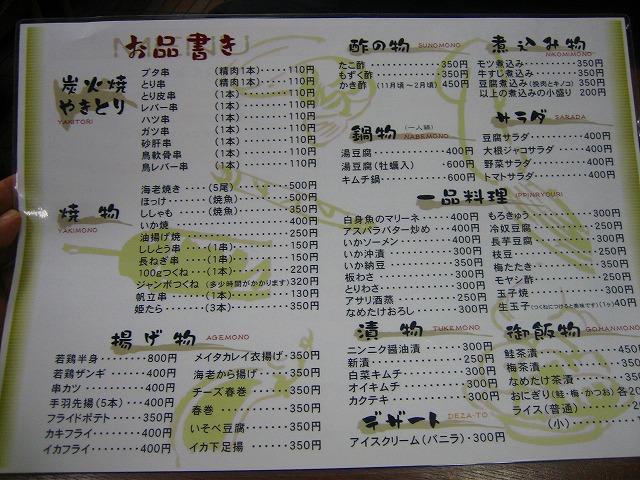 MENU
お品書き
炭火焼
やきとり
YAKITORI
ブタ串 (精肉1本)・・・110円
とり串 (精肉1本)・・・110円
とり皮串 (1本)・・・・・・110円
レバー串 (1本)・・・・・・110円
ハツ串 (1本)・・・・・・110円
ガツ串 (1本)・・・・・・110円
砂肝串 (1本)・・・・・・110円
鳥軟骨串 (1本)・・・・・・110円
鳥レバー串 (1本)・・・・・・110円
焼物
YAKIMONO
海老焼き・・・(5尾)・・・・・500円
ほっけ・・・・・(焼魚)・・・・・500円
ししゃも・・・・(焼魚)・・・・・350円
いか焼・・・・・・・・・・・・400円
油揚げ焼・・・・・・・・・・250円
ししとう串・・・(1串)・・・・・150円
長ねぎ串・・・(1串)・・・・・150円
100gつくね・・(1本)・・・・・220円
ジャンボつくね (多少時間がかかります)320円
帆立串・・・・・(1本)・・・・・130円
姫たら・・・・・(3本)・・・・・350円
揚げ物
AGEMONO
若鶏半身・・・・・・・800円
若鶏ザンギ・・・・・400円
串カツ・・・・・・・・・400円
手羽先揚(5本)・・400円
フライドポテト・・・350円
カキフライ・・・・・・400円
イカフライ・・・・・・400円
メイタカレイ衣揚げ・350円
海老から揚げ・・・・350円
チーズ春巻・・・・・・350円
春巻・・・・・・・・・・350円
いそべ豆腐・・・・・・350円
イカ下足揚・・・・・・350円
酢の物
SUNOMONO
たこ酢・・・・・・・・・・350円
もずく酢・・・・・・・・350円
かき酢 (11月頃~2月頃) 450円
鍋物
(一人鍋)
NABEMONO
湯豆腐・・・・・・・・・・400円
湯豆腐(牡蠣入)・・・・600円
キムチ鍋・・・・・・・・・600円
煮込み物
NIKOMIMONO
モツ煮込み・・・・・・・350円
牛すじ煮込み・・・・・・350円
豆腐煮込み(挽肉とキノコ) 350円
以上の煮込みの小盛り 200円
サラダ
SARADA
豆腐サラダ・・・・・・400円
大根ジャコサラダ・・400円
野菜サラダ・・・・・・400円
トマトサラダ・・・・・400円
一品料理
IPPINRYOURI
白身魚のマリーネ・・400円
アスパラバター炒め・・400円
いかソーメン・・・・・・400円
いか沖漬・・・・・・・・300円
いか納豆・・・・・・・・350円
板わさ・・・・・・・・・300円
とりわさ・・・・・・・・350円
アサリ酒蒸・・・・・・250円
なめたけおろし・・・・300円
もろきゅう・・・・・・・300円
冷奴豆腐・・・・・・・250円
長芋豆腐・・・・・・・300円
枝豆・・・・・・・・・・250円
梅たたき・・・・・・・300円
モヤシ酢・・・・・・・250円
玉子焼・・・・・・・・300円
生玉子(つくねにつけると美味です)(1ヶ)40円
漬物
TUKEMONO
ニンニク醤油漬・・・300円
新漬・・・・・・・・・250円
白菜キムチ・・・・・300円
オイキムチ・・・・・300円
カクテキ・・・・・・・300円
デザート
DEZA-TO
アイスクリーム(バニラ)・300円
御飯物
GOHANMONO
鮭茶漬・・・・・・・450
梅茶漬・・・・・・・350円
なめたけ茶漬・・・・350円
おにぎり(鮭・梅・かつお)各20
ライス(普通)・・・・・200
(小)・・・・・・